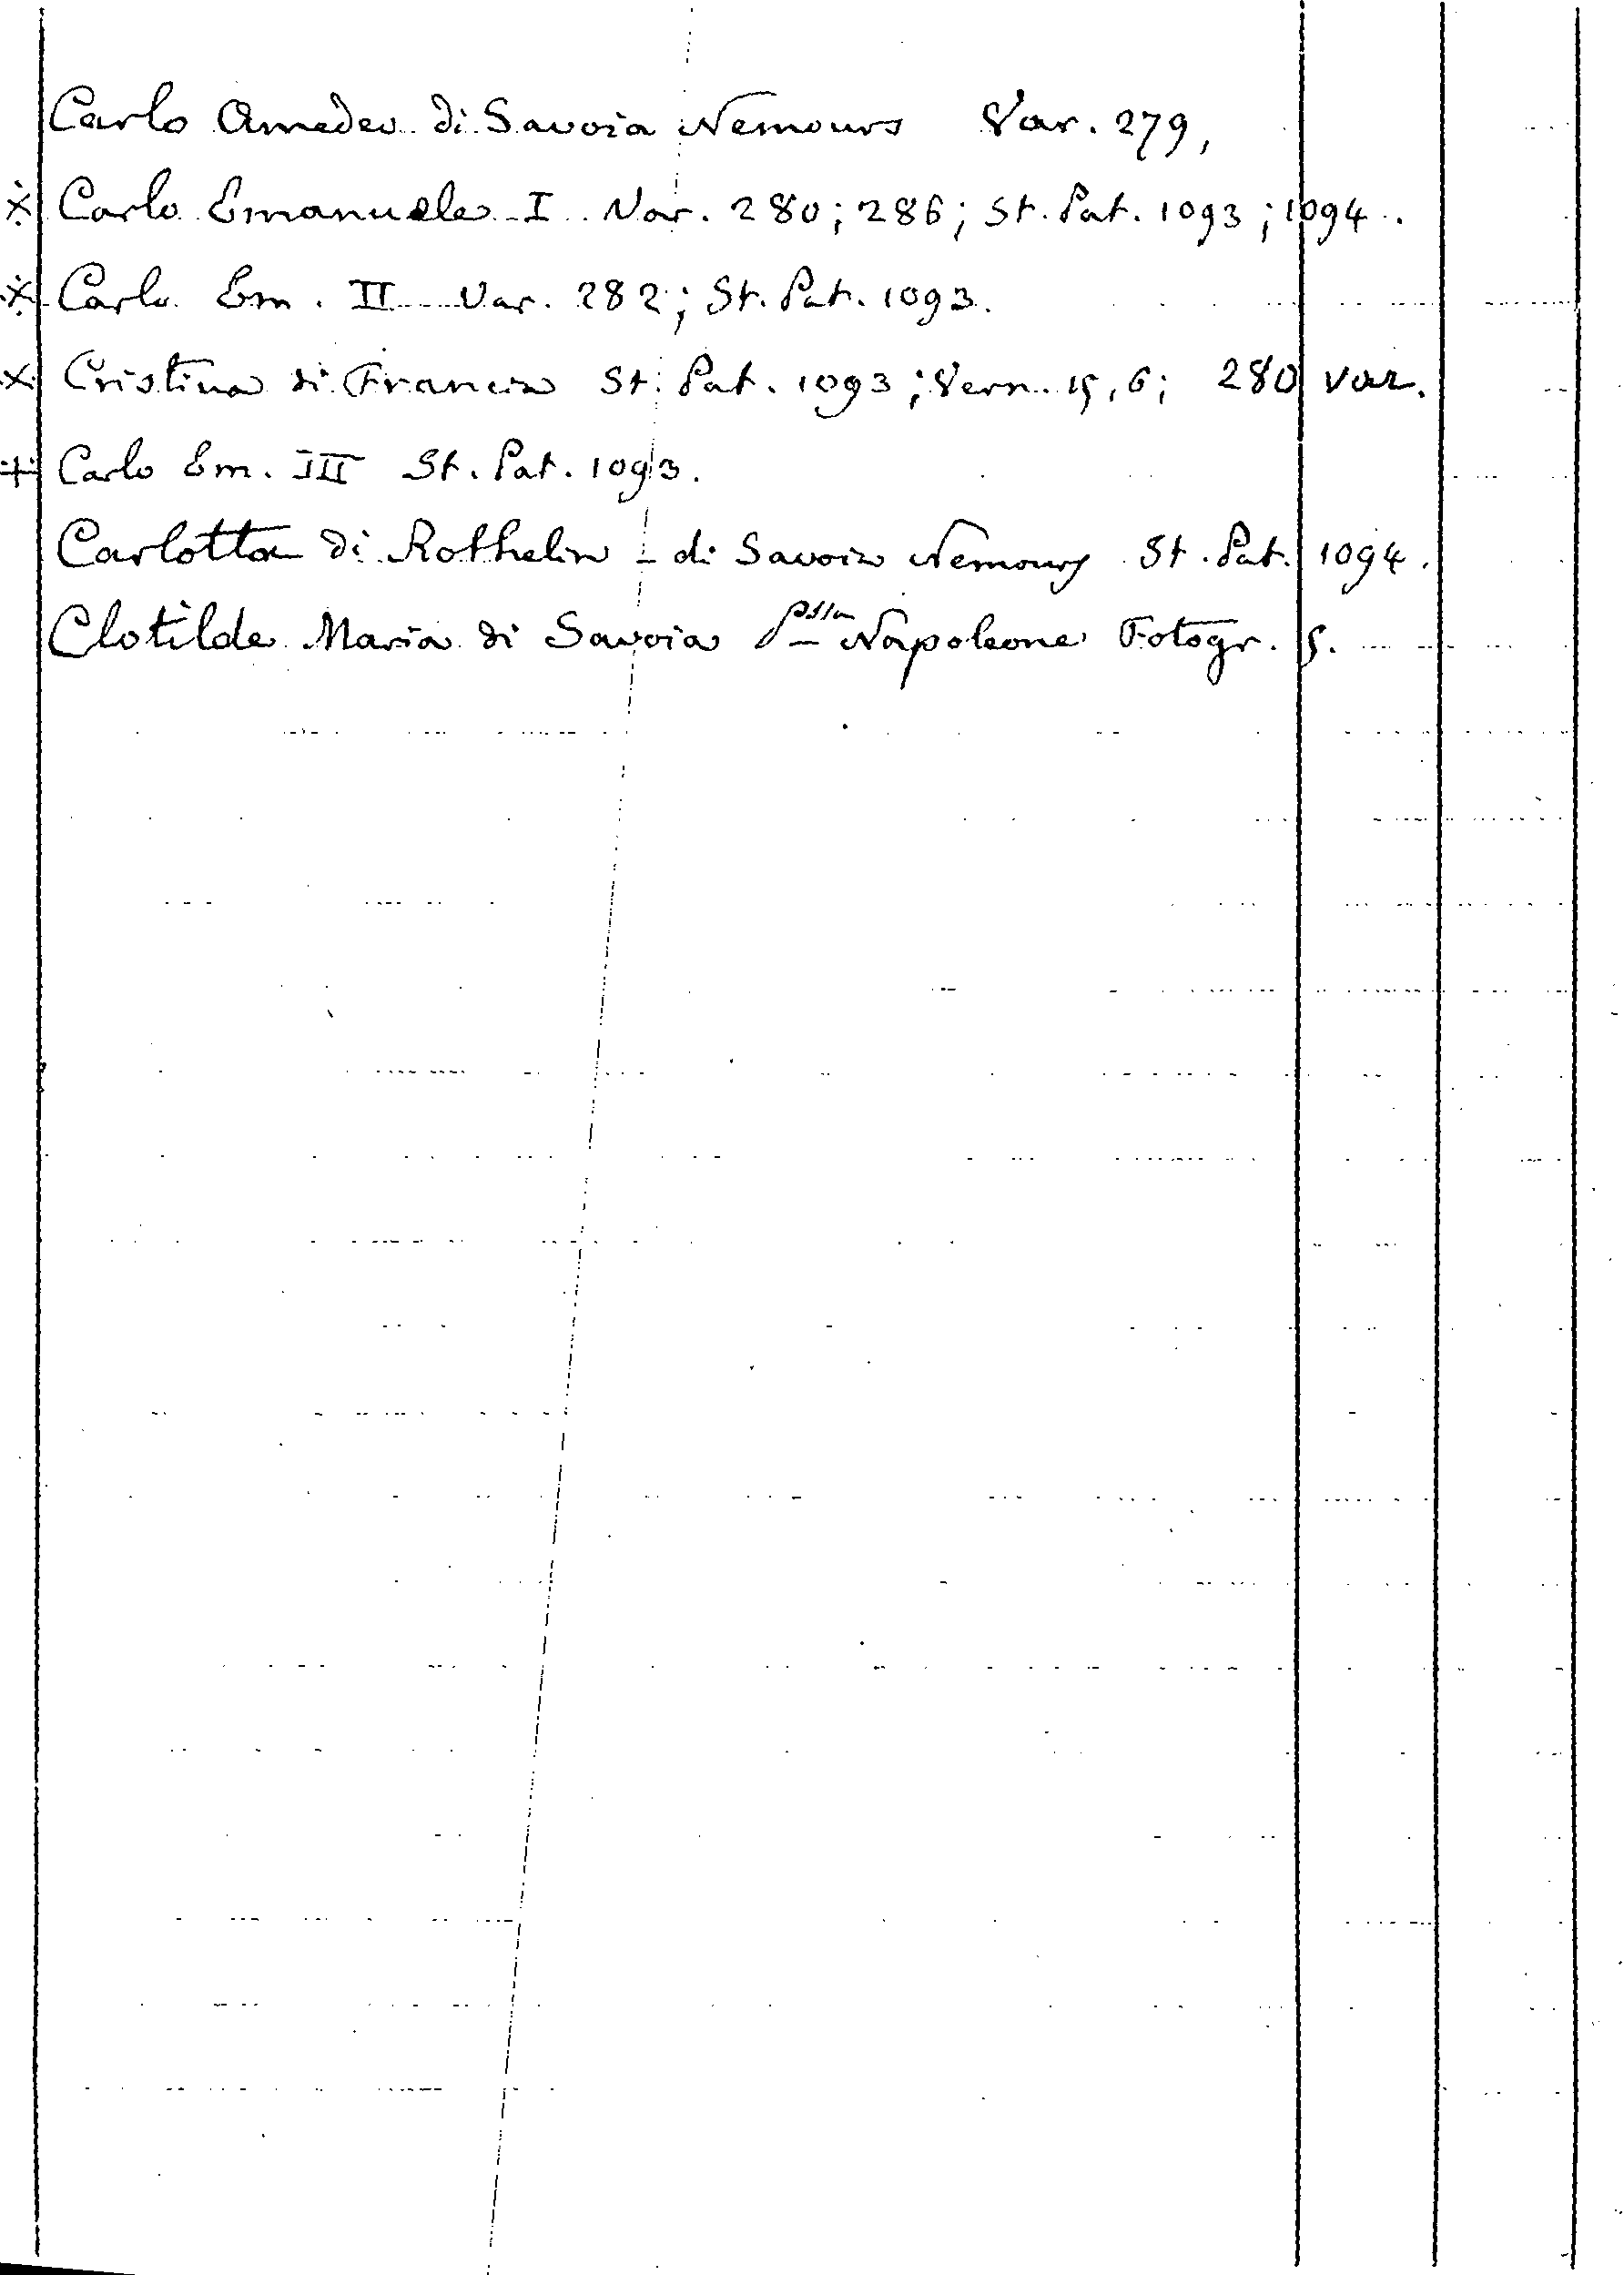 Carlo Amedeo di Savoia Nemours Var. 279,
※ Carlo Emanuele I Var. 280; 286; St. Pat. 1093; 1094.
※ Carlo Em. II Var. 282; St. Pat. 1093.
※ Cristina di Francia St. Pat. 1093; Vern. 15, 6; 280 var.
※ Carlo Em. III St. Pat. 1093.
Carlotta di Rothelin - di Savoia Nemours St. Pat. 1094.
Clotilde Maria di Savoia Pssa Napoleone Fotogr. 5.